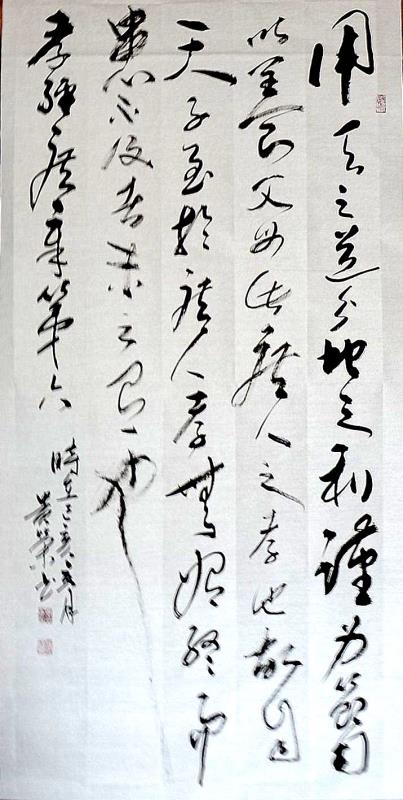 用天之道分地之利謹身節用
以養父母此庶人之孝也故自
天子至於庶人孝無始終而
患不及者未之有也
孝經庶人章第六
時在己亥冬月